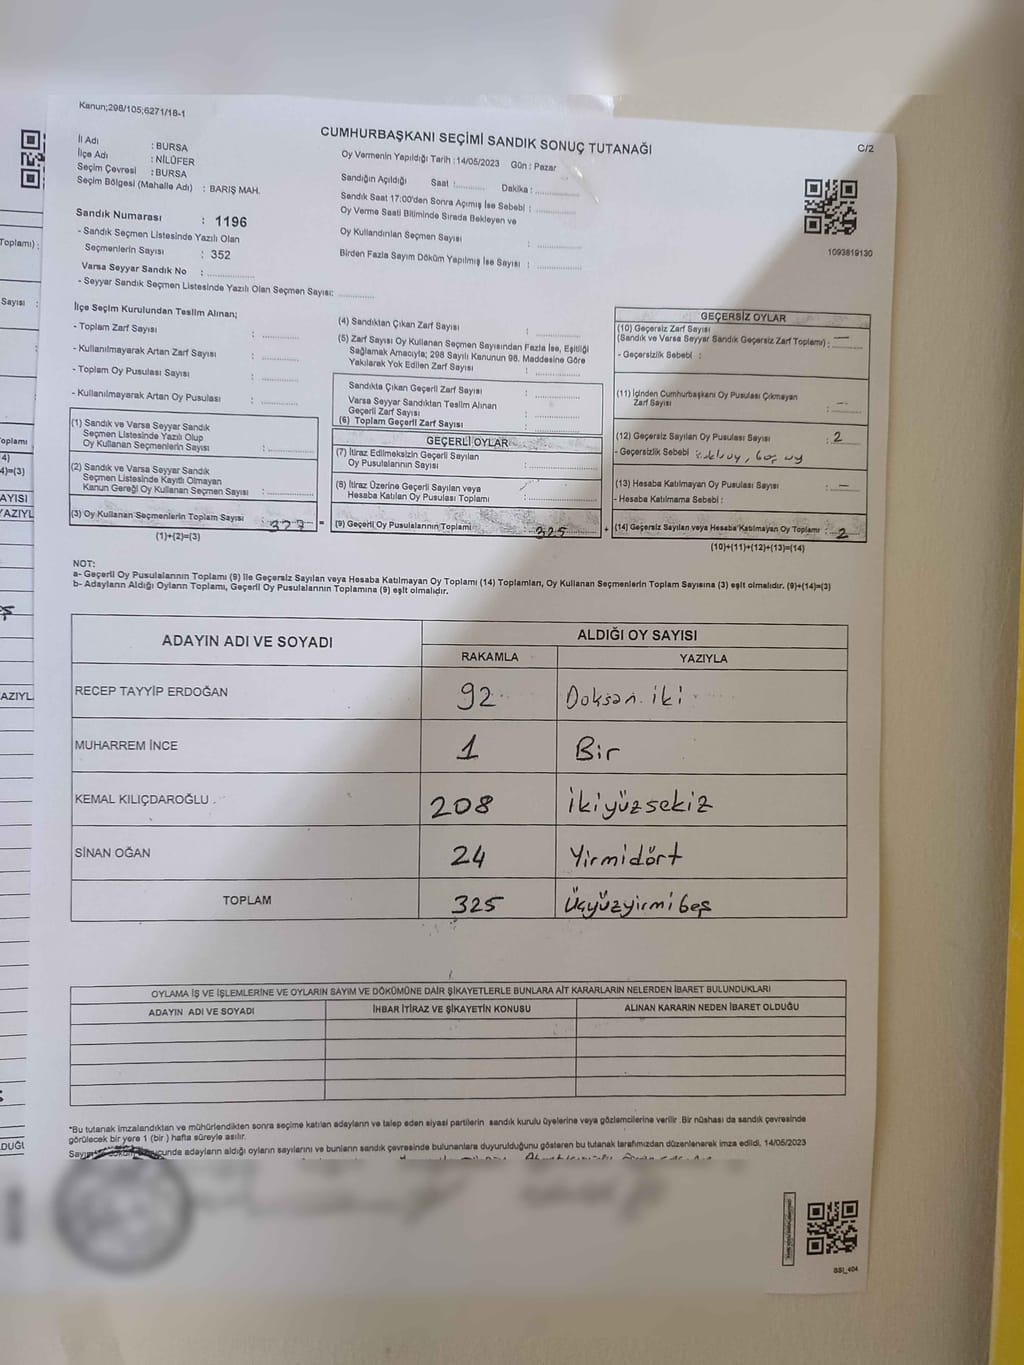 Kanun;298/105;6271/18-1
CUMHURBAŞKANI SEÇİMİ SANDIK SONUÇ TUTANAĞI
C/2
İl Adı : BURSA
İlçe Adı : NİLÜFER
Seçim Çevresi : BURSA
Seçim Bölgesi (Mahalle Adı) : BARIŞ MAH.
Sandık Numarası : 1196
- Sandık Seçmen Listesinde Yazılı Olan
Seçmenlerin Sayısı : 352
Varsa Seyyar Sandık No : ............
- Seyyar Sandık Seçmen Listesinde Yazılı Olan Seçmen Sayısı: ............
Oy Vermenin Yapıldığı Tarih : 14/05/2023 Gün : Pazar
Sandığın Açıldığı Saat :.......... Dakika : ............
Sandık Saat 17:00'den Sonra Açımış İse Sebebi : ............
Oy Verme Saati Bitiminde Sırada Bekleyen ve
Oy Kullandırılan Seçmen Sayısı : ............
Birden Fazla Sayım Döküm Yapılmış İse Sayısı : ............
1093819130
İlçe Seçim Kurulundan Teslim Alınan;
- Toplam Zarf Sayısı : ............
- Kullanılmayarak Artan Zarf Sayısı : ............
- Toplam Oy Pusulası Sayısı : ............
- Kullanılmayarak Artan Oy Pusulası : ............
(1) Sandık ve Varsa Seyyar Sandık
Seçmen Listesinde Yazılı Olup
Oy Kullanan Seçmenlerin Sayısı : ............
(2) Sandık ve Varsa Seyyar Sandık
Seçmen Listesinde Kayıtlı Olmayan
Kanun Gereği Oy Kullanan Seçmen Sayısı : ............
(3) Oy Kullanan Seçmenlerin Toplam Sayısı : 327 =
(1)+(2)=(3)
(4) Sandıktan Çıkan Zarf Sayısı : ............
(5) Zarf Sayısı Oy Kullanan Seçmen Sayısından Fazla İse, Eşitliği
Sağlamak Amacıyla; 298 Sayılı Kanunun 98. Maddesine Göre
Yakılarak Yok Edilen Zarf Sayısı : ............
Sandıkta Çıkan Geçerli Zarf Sayısı : ............
Varsa Seyyar Sandıktan Teslim Alınan
Geçerli Zarf Sayısı : ............
(6) Toplam Geçerli Zarf Sayısı : ............
GEÇERLİ OYLAR
(7) İtiraz Edilmeksizin Geçerli Sayılan
Oy Pusulalarının Sayısı : ............
(8) İtiraz Üzerine Geçerli Sayılan veya
Hesaba Katılan Oy Pusulası Toplamı : ............
(9) Geçerli Oy Pusulalarının Toplamı : 325 +
GEÇERSİZ OYLAR
(10) Geçersiz Zarf Sayısı
(Sandık ve Varsa Seyyar Sandık Geçersiz Zarf Toplamı) : —
- Geçersizlik Sebebi :
(11) İçinden Cumhurbaşkanı Oy Pusulası Çıkmayan
Zarf Sayısı : —
(12) Geçersiz Sayılan Oy Pusulası Sayısı : 2
- Geçersizlik Sebebi boş oy
(13) Hesaba Katılmayan Oy Pusulası Sayısı : —
- Hesaba Katılmama Sebebi :
(14) Geçersiz Sayılan veya Hesaba Katılmayan Oy Toplamı : 2
(10)+(11)+(12)+(13)=(14)
NOT:
a- Geçerli Oy Pusulalarının Toplamı (9) ile Geçersiz Sayılan veya Hesaba Katılmayan Oy Toplamı (14) Toplamları, Oy Kullanan Seçmenlerin Toplam Sayısına (3) eşit olmalıdır. (9)+(14)=(3)
b- Adayların Aldığı Oyların Toplamı, Geçerli Oy Pusulalarının Toplamına (9) eşit olmalıdır.
ADAYIN ADI VE SOYADI ALDIĞI OY SAYISI
RAKAMLA YAZIYLA
RECEP TAYYİP ERDOĞAN 92 Doksan iki
MUHARREM İNCE 1 Bir
KEMAL KILIÇDAROĞLU 208 İkiyüzsekiz
SİNAN OĞAN 24 Yirmidört
TOPLAM 325 Üçyüzyirmibeş
OYLAMA İŞ VE İŞLEMLERİNE VE OYLARIN SAYIM VE DÖKÜMÜNE DAİR ŞİKAYETLERLE BUNLARA AİT KARARLARIN NELERDEN İBARET BULUNDUKLARI
ADAYIN ADI VE SOYADI İHBAR İTİRAZ VE ŞİKAYETİN KONUSU ALINAN KARARIN NEDEN İBARET OLDUĞU
*Bu tutanak imzalandıktan ve mühürlendikten sonra seçime katılan adayların ve talep eden siyasi partilerin sandık kurulu üyelerine veya gözlemcilerine verilir .Bir nüshası da sandık çevresinde
görülecek bir yere 1 (bir ) hafta süreyle asılır.
adayların aldığı oyların sayılarını ve bunların sandık çevresinde bulunanlara duyurulduğunu gösteren bu tutanak tarafımızdan düzenlenerek imza edildi. 14/05/2023
SSI_404